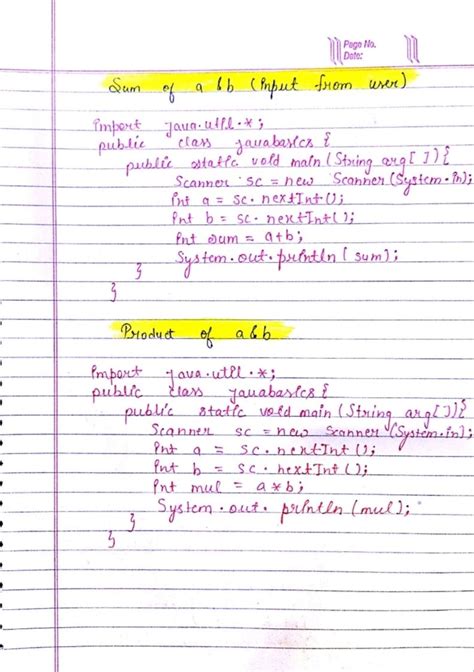 Page No.
Date:
Sum of a & b (Input from user)
import java.util.*;
public class javabasics {
public static void main (String arg[ ]) {
Scanner sc = new Scanner (System.in);
int a = sc.nextInt();
int b = sc.nextInt();
int sum = a+b;
System.out.println( sum);
}
}
Product of a & b
import java.util.*;
public class javabasics {
public static void main (String arg[]){
Scanner sc = new Scanner (System.in);
int a = sc.nextInt();
int b = sc.nextInt();
int mul = a*b;
System.out.println (mul);
}
}